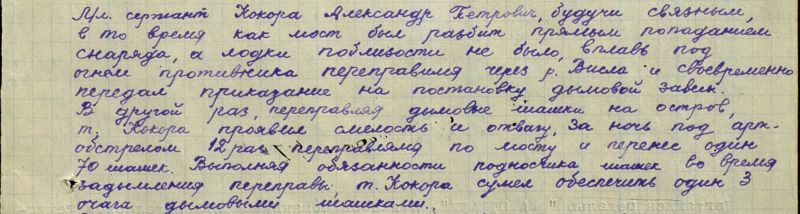 Мл. сержант Кокора Александр Петрович, будучи связным,
в то время как мост был разбит прямым попаданием
снаряда, а лодки поблизости не было, вплавь под
огнем противника переправился через р. Висла и своевременно
передал приказание на постановку дымовой завесы.
В другой раз, переправляя дымовые шашки на остров,
т. Кокора проявил смелость и отвагу, за ночь под арт-
обстрелом 12 раз переправился по мосту и перенес один
70 шашек. Выполняя обязанности подносчика шашек во время
задымления переправы, т. Кокора сумел обеспечить один 3
очага дымовыми шашками.